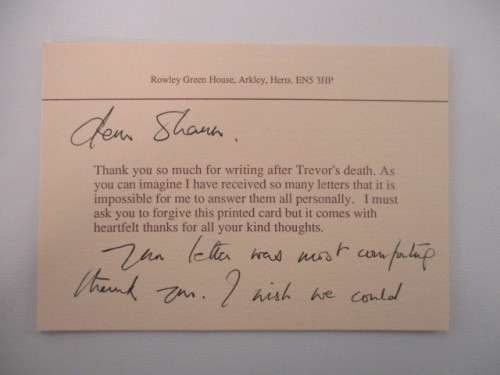 Rowley Green House, Arkley, Herts. EN5 3HP
Dear Sharon.
Thank you so much for writing after Trevor's death. As
you can imagine I have received so many letters that it is
impossible for me to answer them all personally. I must
ask you to forgive this printed card but it comes with
heartfelt thanks for all your kind thoughts.
Your letter was most comforting
thank you. I wish we could